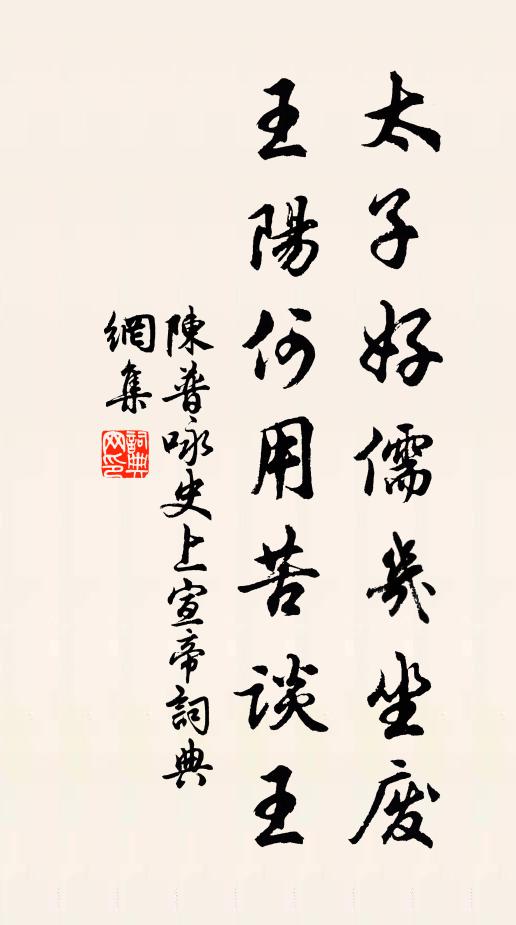 太子好儒幾坐廢
王陽何用苦談王
陳普咏史上宣帝詞典
網集
詞典
网印